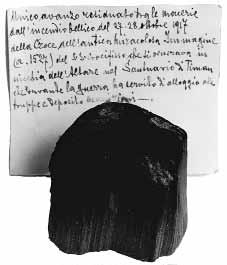 Unico avanzo restituito tra le macerie
dall'incendio bellico del 27-28 ottobre 1917
della Croce dell'antica miracolosa Immagine
(a. 1587) del SS Crocifisso che si venerava in
nicchia dell'Altare nel Santuario di Timau
che durante la guerra ha servito d'alloggio alle
truppe e deposito